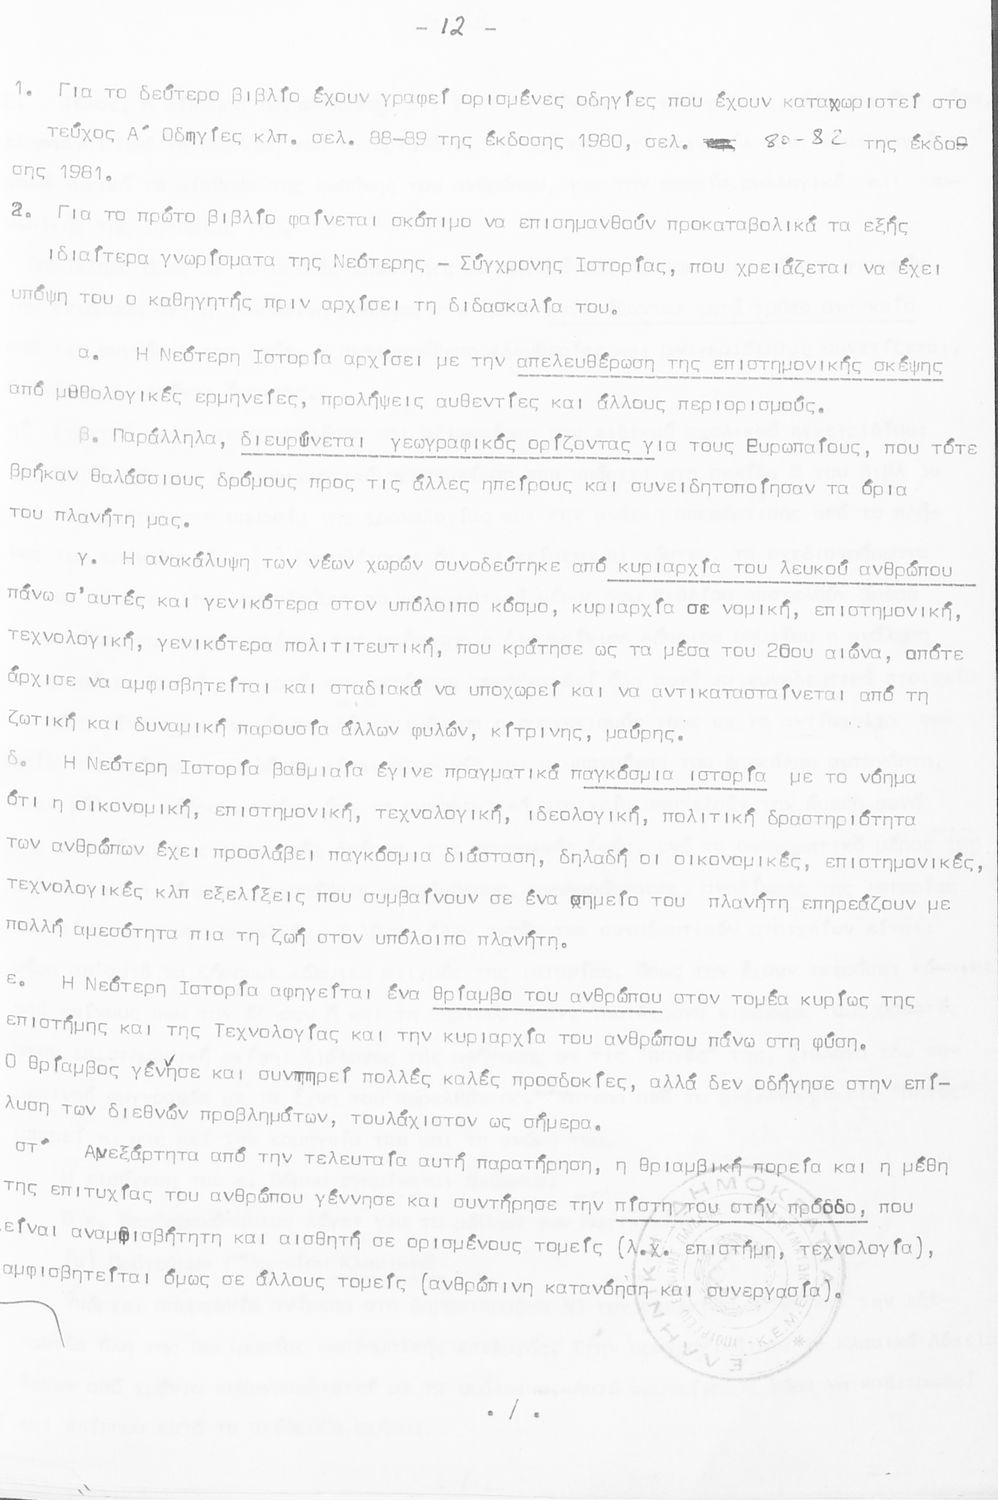 - 12 -
1. Για το δεύτερο βιβλίο έχουν γραφεί ορισμένες οδηγίες που έχουν καταχωριστεί στο
τεύχος Α΄ Οδηγίες κλπ. σελ. 88-89 της έκδοσης 1980, σελ. 80-82 της έκδο-
σης 1981.
2. Για το πρώτο βιβλίο φαίνεται σκόπιμο να επισημανθούν προκαταβολικά τα εξής
ιδιαίτερα γνωρίσματα της Νεότερης - Σύγχρονης Ιστορίας, που χρειάζεται να έχει
υπόψη του ο καθηγητής πριν αρχίσει τη διδασκαλία του.
α. Η Νεότερη Ιστορία αρχίσει με την απελευθέρωση της επιστημονικής σκέψης
από μυθολογικές ερμηνείες, προλήψεις αυθεντίες και άλλους περιορισμούς.
β. Παράλληλα, διευρώνεται γεωγραφικός ορίζοντας για τους Ευρωπαίους, που τότε
βρήκαν θαλάσσιους δρόμους προς τις άλλες ηπείρους και συνειδητοποίησαν τα όρια
του πλανήτη μας.
γ. Η ανακάλυψη των νέων χωρών συνοδεύτηκε από κυριαρχία του λευκού ανθρώπου
πάνω σ'αυτές και γενικότερα στον υπόλοιπο κόσμο, κυριαρχία σε νομική, επιστημονική,
τεχνολογική, γενικότερα πολιτιτευτική, που κράτησε ως τα μέσα του 20ου αιώνα, οπότε
άρχισε να αμφισβητείται και σταδιακά να υποχωρεί και να αντικατασταίνεται από τη
ζωτική και δυναμική παρουσία άλλων φυλών, κίτρινης, μαύρης.
δ. Η Νεότερη Ιστορία βαθμιαία έγινε πραγματικά παγκόσμια ιστορία με το νόημα
ότι η οικονομική, επιστημονική, τεχνολογική, ιδεολογική, πολιτική δραστηριότητα
των ανθρώπων έχει προσλάβει παγκόσμια διάσταση, δηλαδή οι οικονομικές, επιστημονικές,
τεχνολογικές κλπ εξελίξεις που συμβαίνουν σε ένα σημείο του πλανήτη επηρεάζουν με
πολλή αμεσότητα πια τη ζωή στον υπόλοιπο πλανήτη.
ε. Η Νεότερη Ιστορία αφηγείται ένα θρίαμβο του ανθρώπου στον τομέα κυρίως της
επιστήμης και της Τεχνολογίας και την κυριαρχία του ανθρώπου πάνω στη φύση.
Ο θρίαμβος γέννησε και συντηρεί πολλές καλές προσδοκίες, αλλά δεν οδήγησε στην επί-
λυση των διεθνών προβλημάτων, τουλάχιστον ως σήμερα.
στ΄ Ανεξάρτητα από την τελευταία αυτή παρατήρηση, η θριαμβική πορεία και η μέθη
της επιτυχίας του ανθρώπου γέννησε και συντήρησε την πίστη του στην πρόοδο, που
είναι αναμφισβήτητη και αισθητή σε ορισμένους τομείς (λ.χ. επιστήμη, τεχνολογία),
αμφισβητείται όμως σε άλλους τομείς (ανθρώπινη κατανόηση και συνεργασία).
ΕΛΛΗΝΙΚΗ ΔΗΜΟΚΡΑΤΙΑ
Κ.Ε.Μ.Ε.
./.